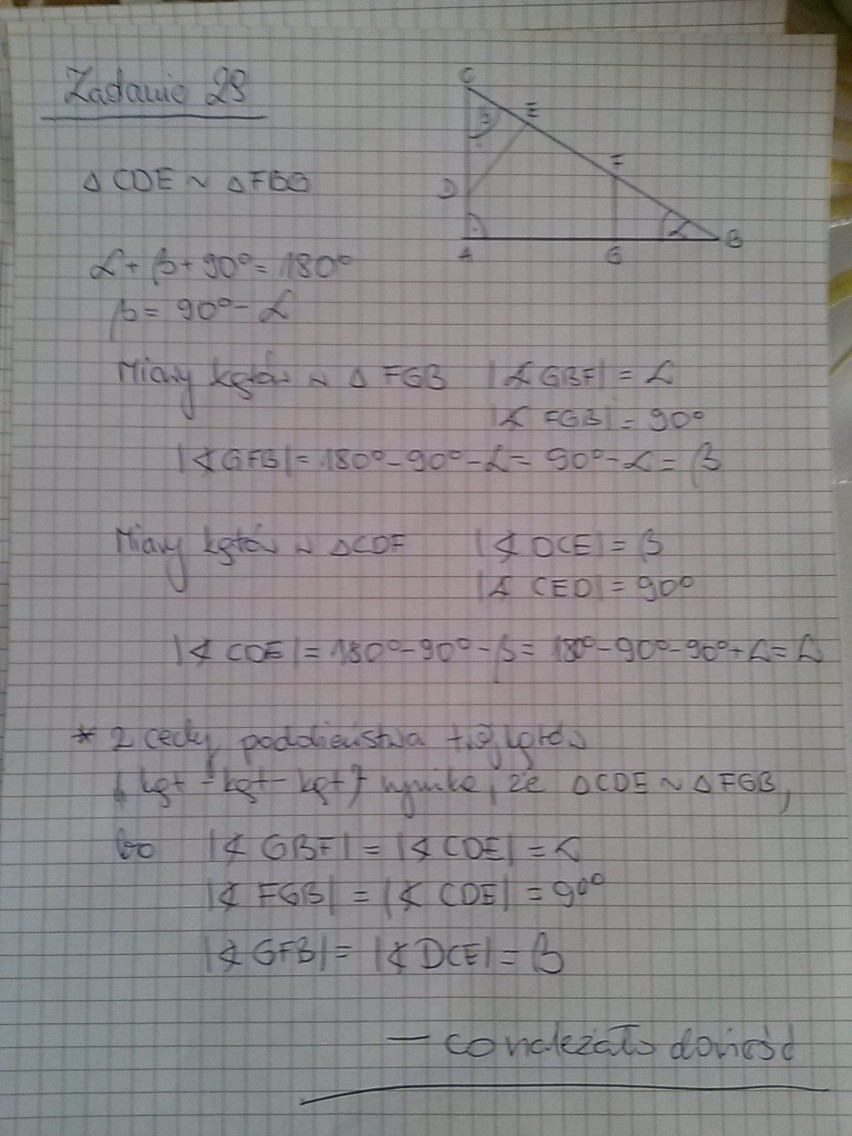 Zadanie 28
C
E
β
F
D
α
A
G
B
Δ CDE ~ Δ FBG
α + β + 90° = 180°
β = 90° - α
Miary kątów w Δ FGB |∡ GBF| = α
|∡ FGB| = 90°
|∡GFB| = 180° - 90° - α = 90° - α = β
Miary kątów w ΔCDE |∡ DCE| = β
|∡ CED| = 90°
|∡ CDE| = 180° - 90° - β = 180° - 90° - 90° + α = α
* z cechy podobieństwa trójkątów
(kąt - kąt - kąt) wynika, że ΔCDE ~ ΔFGB,
bo |∡ GBF| = |∡ CDE| = α
|∡ FGB| = |∡ CDE| = 90°
|∡ GFB| = |∡ DCE| = β
— co należało dowieść